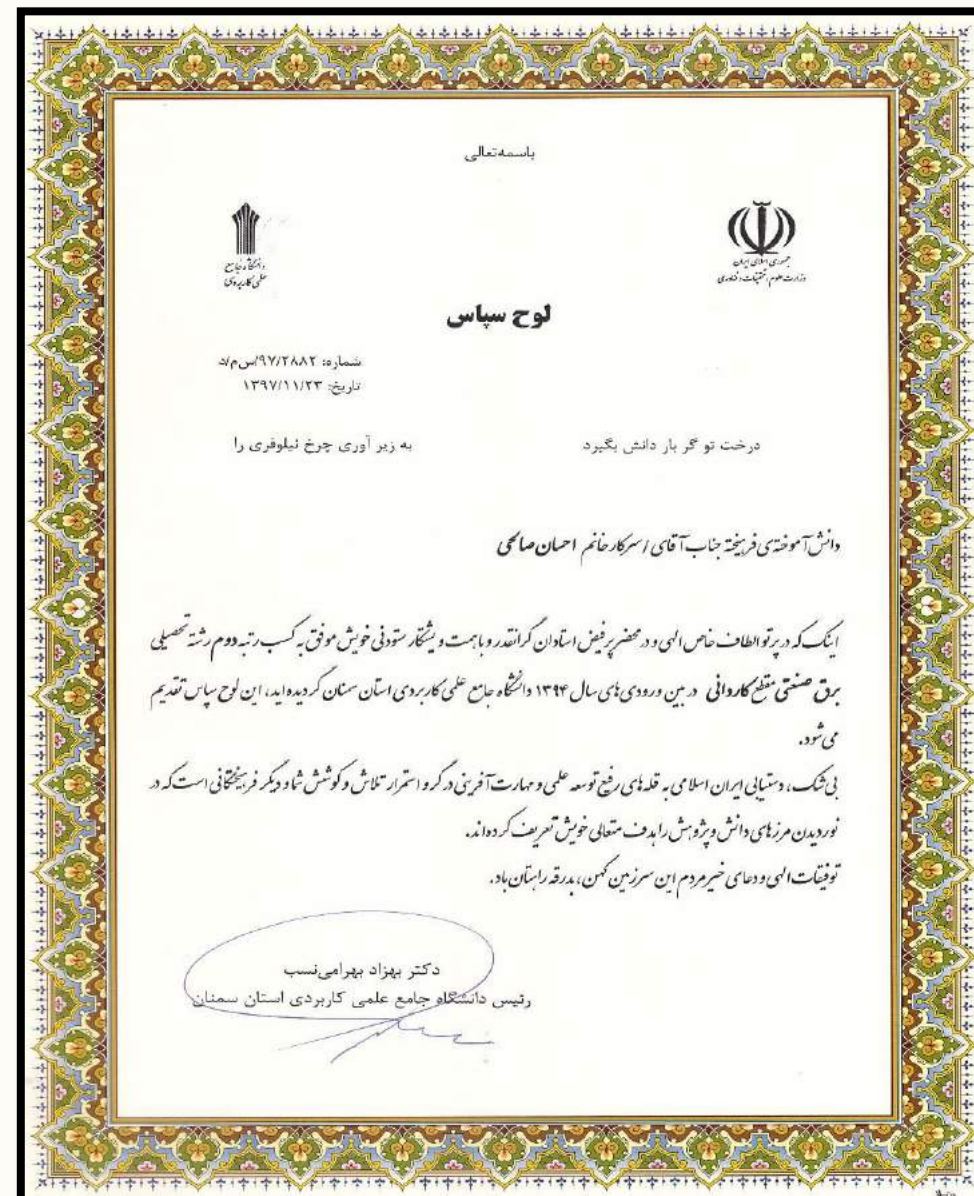 باسمه‌تعالی
جمهوری اسلامی ایران
وزارت علوم، تحقیقات و فناوری
دانشگاه جامع
علمی کاربردی
لوح سپاس
شماره: ۹۷/۲۸۸۲/س‌م/د
تاریخ: ۱۳۹۷/۱۱/۲۳
درخت تو گر بار دانش بگیرد به زیر آوری چرخ نیلوفری را
دانش آموخته‌ی فرهیخته جناب آقای / سرکار خانم احسان صالحی
اینک که در پرتو الطاف خاص الهی و در محضر پر فیض استادان گرانقدر و با همت و پشتکار ستودنی خویش موفق به کسب رتبه دوم رشته تحصیلی
برق صنعتی مقطع کاردانی در بین ورودی های سال ۱۳۹۴ دانشگاه جامع علمی کاربردی استان سمنان گردیده اید، این لوح سپاس تقدیم
می شود.
بی شک، دستیابی ایران اسلامی به قله های رفیع توسعه علمی و مهارت آفرینی در گرو استمرار تلاش و کوشش شما و دیگر فرهیختگانی است که در
نوردیدن مرزهای دانش و پژوهش را هدف متعالی خویش تعریف کرده اند.
توفیقات الهی و دعای خیر مردم این سرزمین کهن، بدرقه راهتان باد.
دکتر بهزاد بهرامی‌نسب
رئیس دانشگاه جامع علمی کاربردی استان سمنان